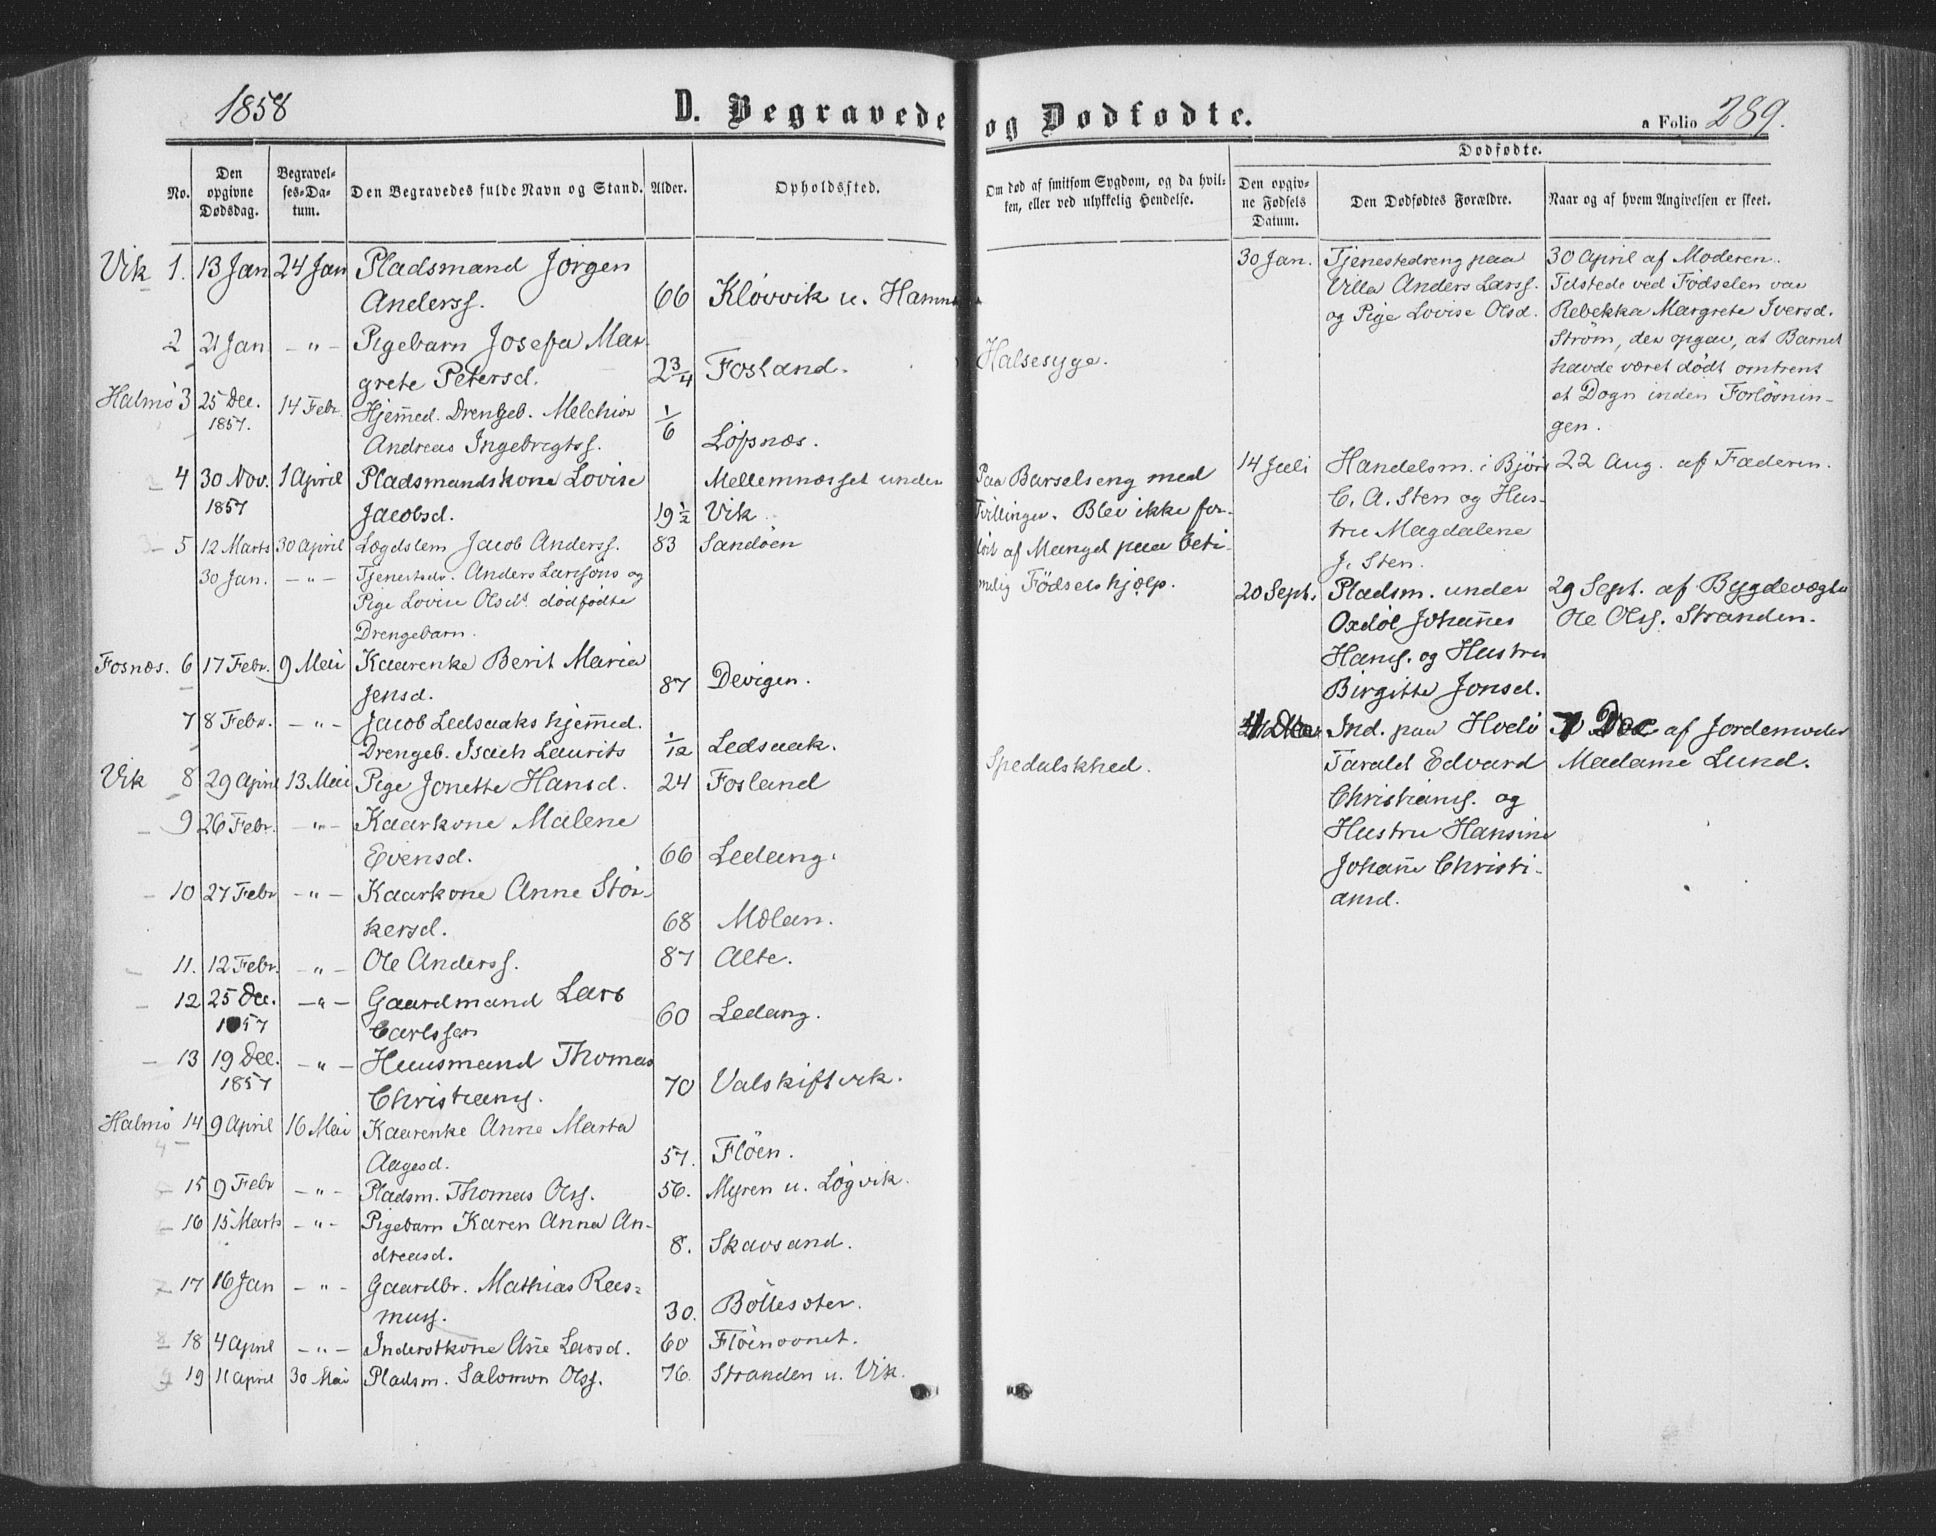 1858
D. Begravede og Dødfødte.
a Folio 289.
No.
Den opgivne Dødsdag.
Begravelses-Datum.
Den Begravedes fulde Navn og Stand.
Alder.
Opholdssted.
Om død af smitsom Sygdom, og da hvilken, eller ved ulykkelig Hendelse.
Dødfødte.
Den opgivne Fødsels Datum.
Den Dødfødtes Forældre.
Naar og af hvem Angivelsen er skeet.
Vik 1. 13 Jan 24 Jan Pladsmand Jørgen
Anderss. 66 Kløvvik u.
2 21 Jan – " – Pigebarn Josefa Mar-
grete Petersd. 2 3/4 Fosland. Halsesyge.
Halmø 3 25 Dec. 14 Febr. Hjemed. Drengeb. Melchior
1857. Andreas Ingebrigtss. 1/6 Løpnæs.
4 30 Nov. 1 April Pladsmandskone Lovise Mellemnæsset under Paa Barselseng med
1857 Jacobsd. 19 1/2 Vik. Tvillinger. Blev ikke for-
5 12 Marts 30 April Lægdslem Jacob Anderss. 83 Sandøen løst af Mangel paa beti-
30 Jan. – " – Tjenestedr. Anders Larssons og melig Fødselshjælp.
Pige Lovise Olsdt. dødfødte
Drengebarn.
Fosnæs. 6 17 Febr. 9 Mai Kaarenke Berit Maria
Jensd. 87 Devigen.
7 8 Febr. – " – Jacob Ledsaaks hjemed.
Drengeb. Isach Laurits 1/12 Ledsaak.
Vik 8 29 April 13 Mai Pige Jonette Hansd. 24 Fosland Spedalskhed.
9 26 Febr. – " – Kaarkone Malene
Evensd. 66 Ledang.
10 27 Febr – " – Kaarkone Anne Stør-
kersd. 68 Mølan.
11. 12 Febr. – " – Ole Anderss. 87 Alte.
12 25 Dec. – " – Gaardmand Lars
1857 Carlssen 60 Ledang.
13 19 Dec. – " – Huusmand Thomas
1857 Christians. 70 Valskiftvik.
Halmø 14 9 April 16 Mai Kaarenke Anne Marta
Aagesd. 57. Fløen.
15 9 Febr – " – Pladsm. Thomas Olss. 56. Myren u. Løgvik.
16 15 Marts – " – Pigebarn Karen Anna An-
dreasd. 8. Skavsand.
17 16 Jan – " – Gaardbr. Mathias Ras-
muss. 30. Böllesöter.
18 4 April – " – Inderstkone Ane Larsd. 60 Fløenovnet.
19 11 April 30 Mai Pladsm. Salomon Olss. 76. Stranden u. Vik.
30 Jan. Tjenestedreng paa 30 April af Moderen.
Villa Anders Larss. Tilstede ved Fødselen var
og Pige Lovise Olsd. Rebekka Margrete Iversd.
Strøm, der opgav, at Barnet
havde været dødt omtrent
et Døgn inden Forløsnin-
gen.
14 Juli Handelsm. i Bjørø 22 Aug. af Faderen.
C. A. Sten og Hus-
tru Magdalene
J. Sten.
20 Sept. Pladsm. under 29 Sept. af Bygdevægter
Oxdöl Johannes Ole Olss. Stranden.
Hans. og Hustru
Birgitte Jonsd.
Ind. paa Hvelø 7 Dec af Jordemoder
Tarald Edvard Madame Lund.
Christians. og
Hustru Hansine
Johane Christi-
ansd.